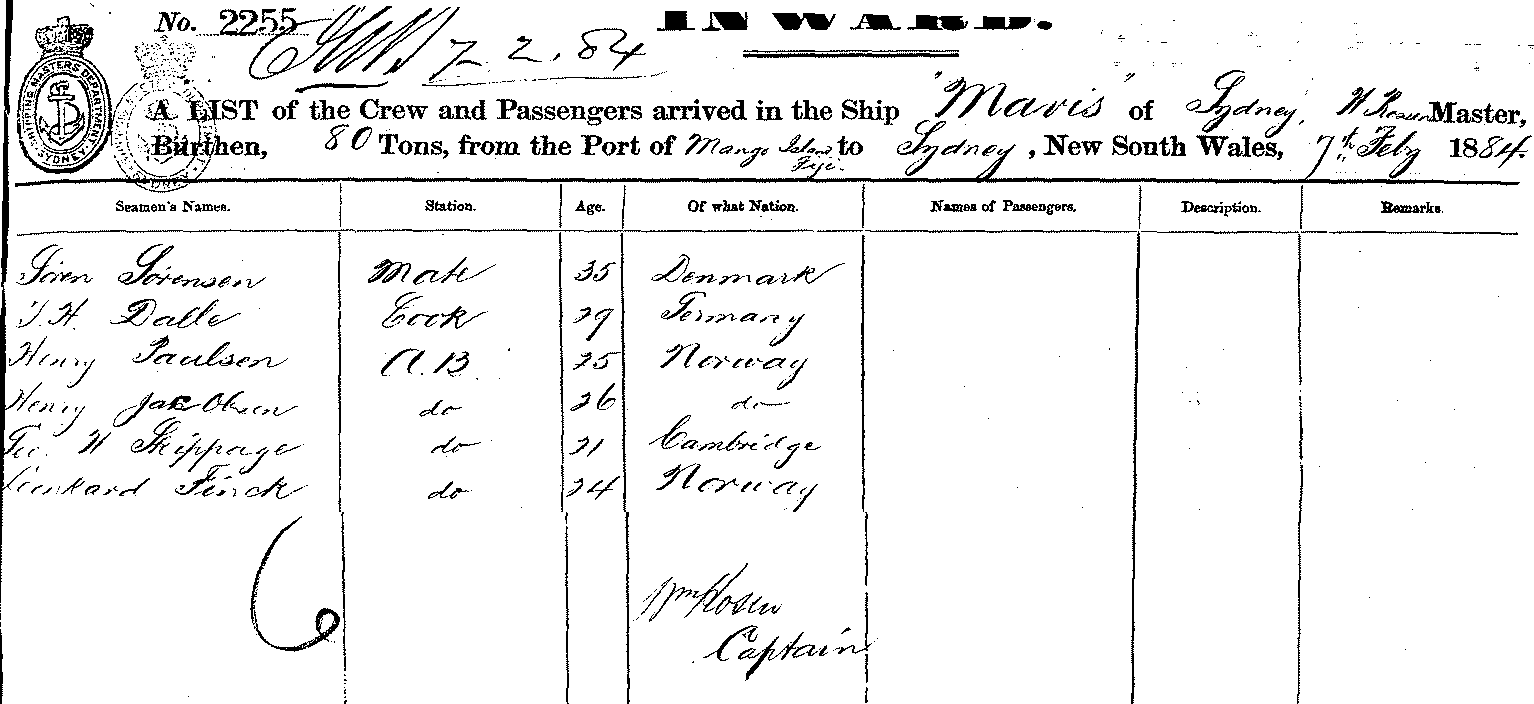 No. 2255 INWARD.
7.2.84
SHIPPING MASTERS DEPARTMENT SYDNEY
A LIST of the Crew and Passengers arrived in the Ship "Mavis" of Sydney, W Rosen Master,
Burthen, 80 Tons, from the Port of Mango Island Feji. to Sydney, New South Wales, 7th Feby 1884.
Seamen's Names. Station. Age. Of what Nation. Names of Passengers. Description. Remarks.
Sören Sörensen Mate 35 Denmark
Dalle Cook 29 Germany
Henry Paulsen A.B. 25 Norway
Henry Jakobsen do 26 do
Geo. W Skippage do 21 Cambridge
Finck do 24 Norway
6
Wm Rosen
Captain